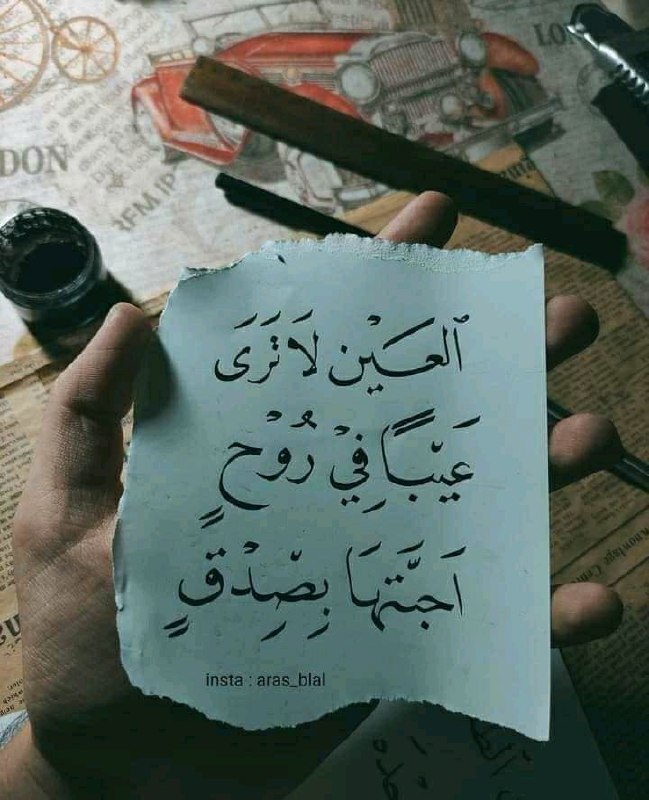 ٱلعَيْن لَا تَرَى
عَيْباً فِيْ رُوْحٍ
اَحبَّتهَا بِصِّدْقٍ
insta : aras_blal
DON
LON